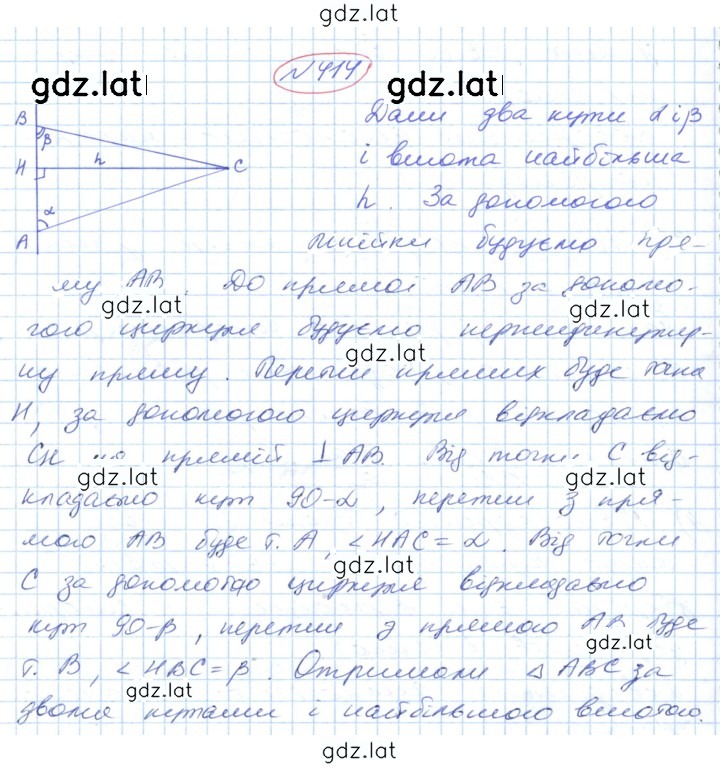 gdz.lat
№414
gdz.lat gdz.lat
B β H h C α A
Дани два кути α і β
і висота найбільша
h. За допомогою
лінійки будуємо пря-
му AB. До прямої AB за допомо-
gdz.lat
гою циркуля будуємо перпендикуляр-
gdz.lat
ну пряму. Перетин прямих буде точка
H, за допомогою циркуля відкладаємо
CH на прямій ⊥ AB. Від точки C від-
gdz.lat gdz.lat
кладаємо кут 90-α, перетин з пря-
мою AB буде т. A, <HAC = α. Від точки
gdz.lat
C за допомогою циркуля відкладаємо
кут 90-β, перетин з прямою AB буде
gdz.lat
т. B, <HBC = β. Отримали △ ABC за
gdz.lat
двома кутами і найбільшою висотою.
gdz.lat